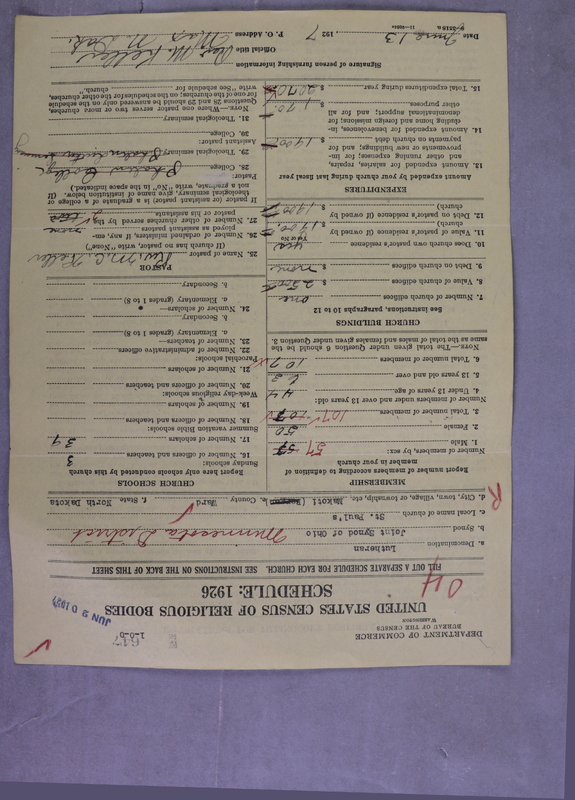 DEPARTMENT OF COMMERCE
BUREAU OF THE CENSUS
WASHINGTON
617
1-0-0
JUN 20 1927
UNITED STATES CENSUS OF RELIGIOUS BODIES
SCHEDULE: 1926
OH
FILL OUT A SEPARATE SCHEDULE FOR EACH CHURCH. SEE INSTRUCTIONS ON THE BACK OF THIS SHEET
a. Denomination Lutheran
b. Synod Joint Synod of Ohio Minnesota District
c. Local name of church St. Paul's
d. City, town, village, or township, etc. Makoti e. County Ward f. State North Dakota
R
MEMBERSHIP
Report number of members according to definition of member in your church
Number of members, by sex:
1. Male 57 57
2. Female 50
3. Total number of members 107 107
Number of members under and over 13 years old:
4. Under 13 years of age 44
5. 13 years old and over 63
6. Total number of members 107
NOTE.—The total given under Question 6 should be the same as the total of males and females given under Question 3.
CHURCH BUILDINGS
See instructions, paragraphs 10 to 12
7. Number of church edifices one
8. Value of church edifices $ 2500
9. Debt on church edifices $ none
10. Does church own pastor's residence yes
Yes or No
11. Value of pastor's residence (if owned by church) $
12. Debt on pastor's residence (if owned by church) $
EXPENDITURES
Amount expended by your church during last fiscal year
13. Amount expended for salaries, repairs, and other running expenses; for improvements or new buildings; and for payments on church debt $ 1900
14. Amount expended for benevolences, including home and foreign missions; for denominational support; and for all other purposes $ 170
15. Total expenditures during year $ 2070
CHURCH SCHOOLS
Report here only schools conducted by this church
Sunday schools:
16. Number of officers and teachers 3
17. Number of scholars 39
Summer vacation Bible schools:
18. Number of officers and teachers
19. Number of scholars
Week-day religious schools:
20. Number of officers and teachers
21. Number of scholars
Parochial schools:
22. Number of administrative officers
23. Number of teachers—
a. Elementary (grades 1 to 8)
b. Secondary
24. Number of scholars—
a. Elementary (grades 1 to 8)
b. Secondary
PASTOR
25. Name of pastor Rev. M. C. Keller
(If church has no pastor, write "None")
26. Number of ordained assistants, if any, employed as assistants to pastor none
27. Number of other churches served by the pastor or his assistants 2
If pastor (or assistant pastor) is a graduate of a college or theological seminary, give name of institution below. (If not a graduate, write "No" in the space indicated).
Pastor:
28. College
29. Theological seminary
Assistant pastor:
30. College
31. Theological seminary
NOTE.—Where one pastor serves two or more churches, Questions 28 and 29 should be answered only on the schedule for one of the churches; on the schedule for the other churches, write "See schedule for church."
Signature of person furnishing information Rev. M. Keller
Official title
P. O. Address Max N. Dak.
Date June 13, 1927